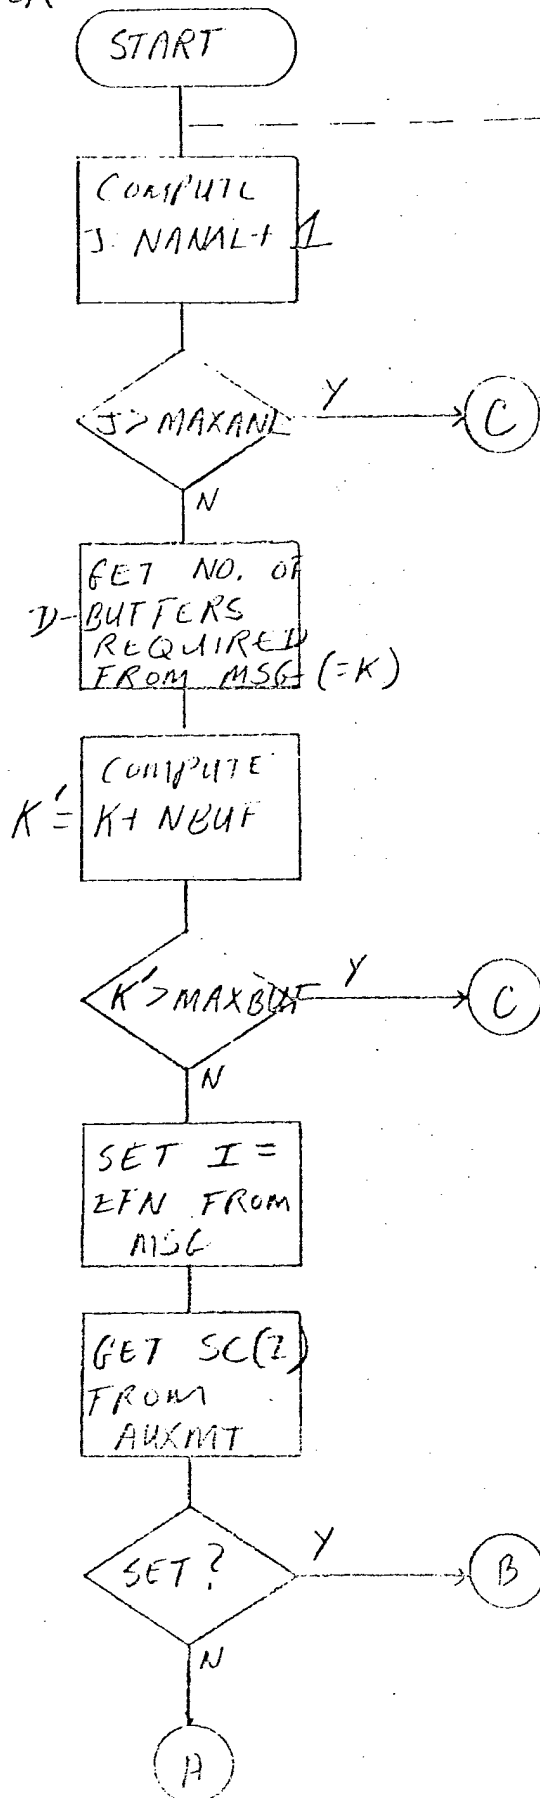 START
COMPUTE
J= NANAL+ 1
J>MAXANL
Y
C
N
GET NO. OF
D-BUFFERS
REQUIRED
FROM MSG (=K)
COMPUTE
K'= K+ NBUF
K'>MAXBUF
Y
C
N
SET I =
EFN FROM
MSG
GET SC(I)
FROM
AUXMT
SET?
Y
B
N
A